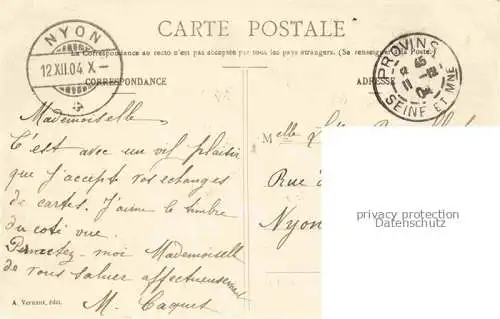 CARTE POSTALE
La Correspondance au recto n'est pas acceptée par tous les pays étrangers. (Se renseigner à la Poste.)
CORRESPONDANCE
ADRESSE
NYON
12 XII.04 X
PROVINS
11
SEINE ET MNE
Mademoiselle
C'est avec un vif plaisir
que j'accepte vos échanges
de cartes. J'aime le timbre
du coté vue.
Permetez-moi Mademoiselle
de vous saluer affectueusement
M. Caquet
Melle
Rue
Nyon
privacy protection
Datenschutz
A. Vernant, édit.